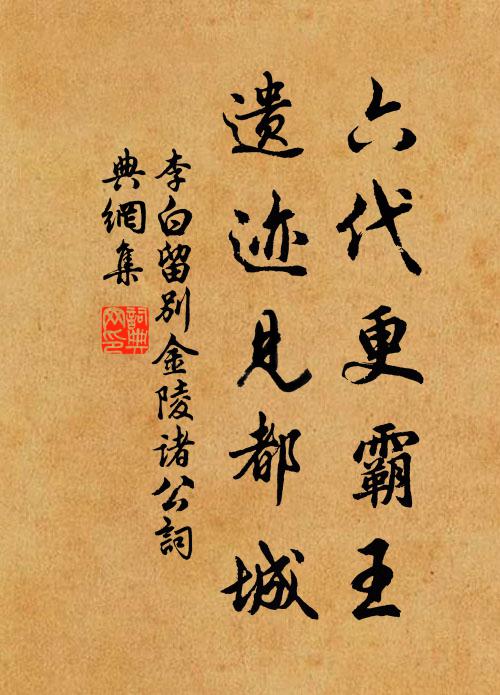 六代更霸王
遗迹见都城
李白留别金陵諸公詞
典網集
詞典網印